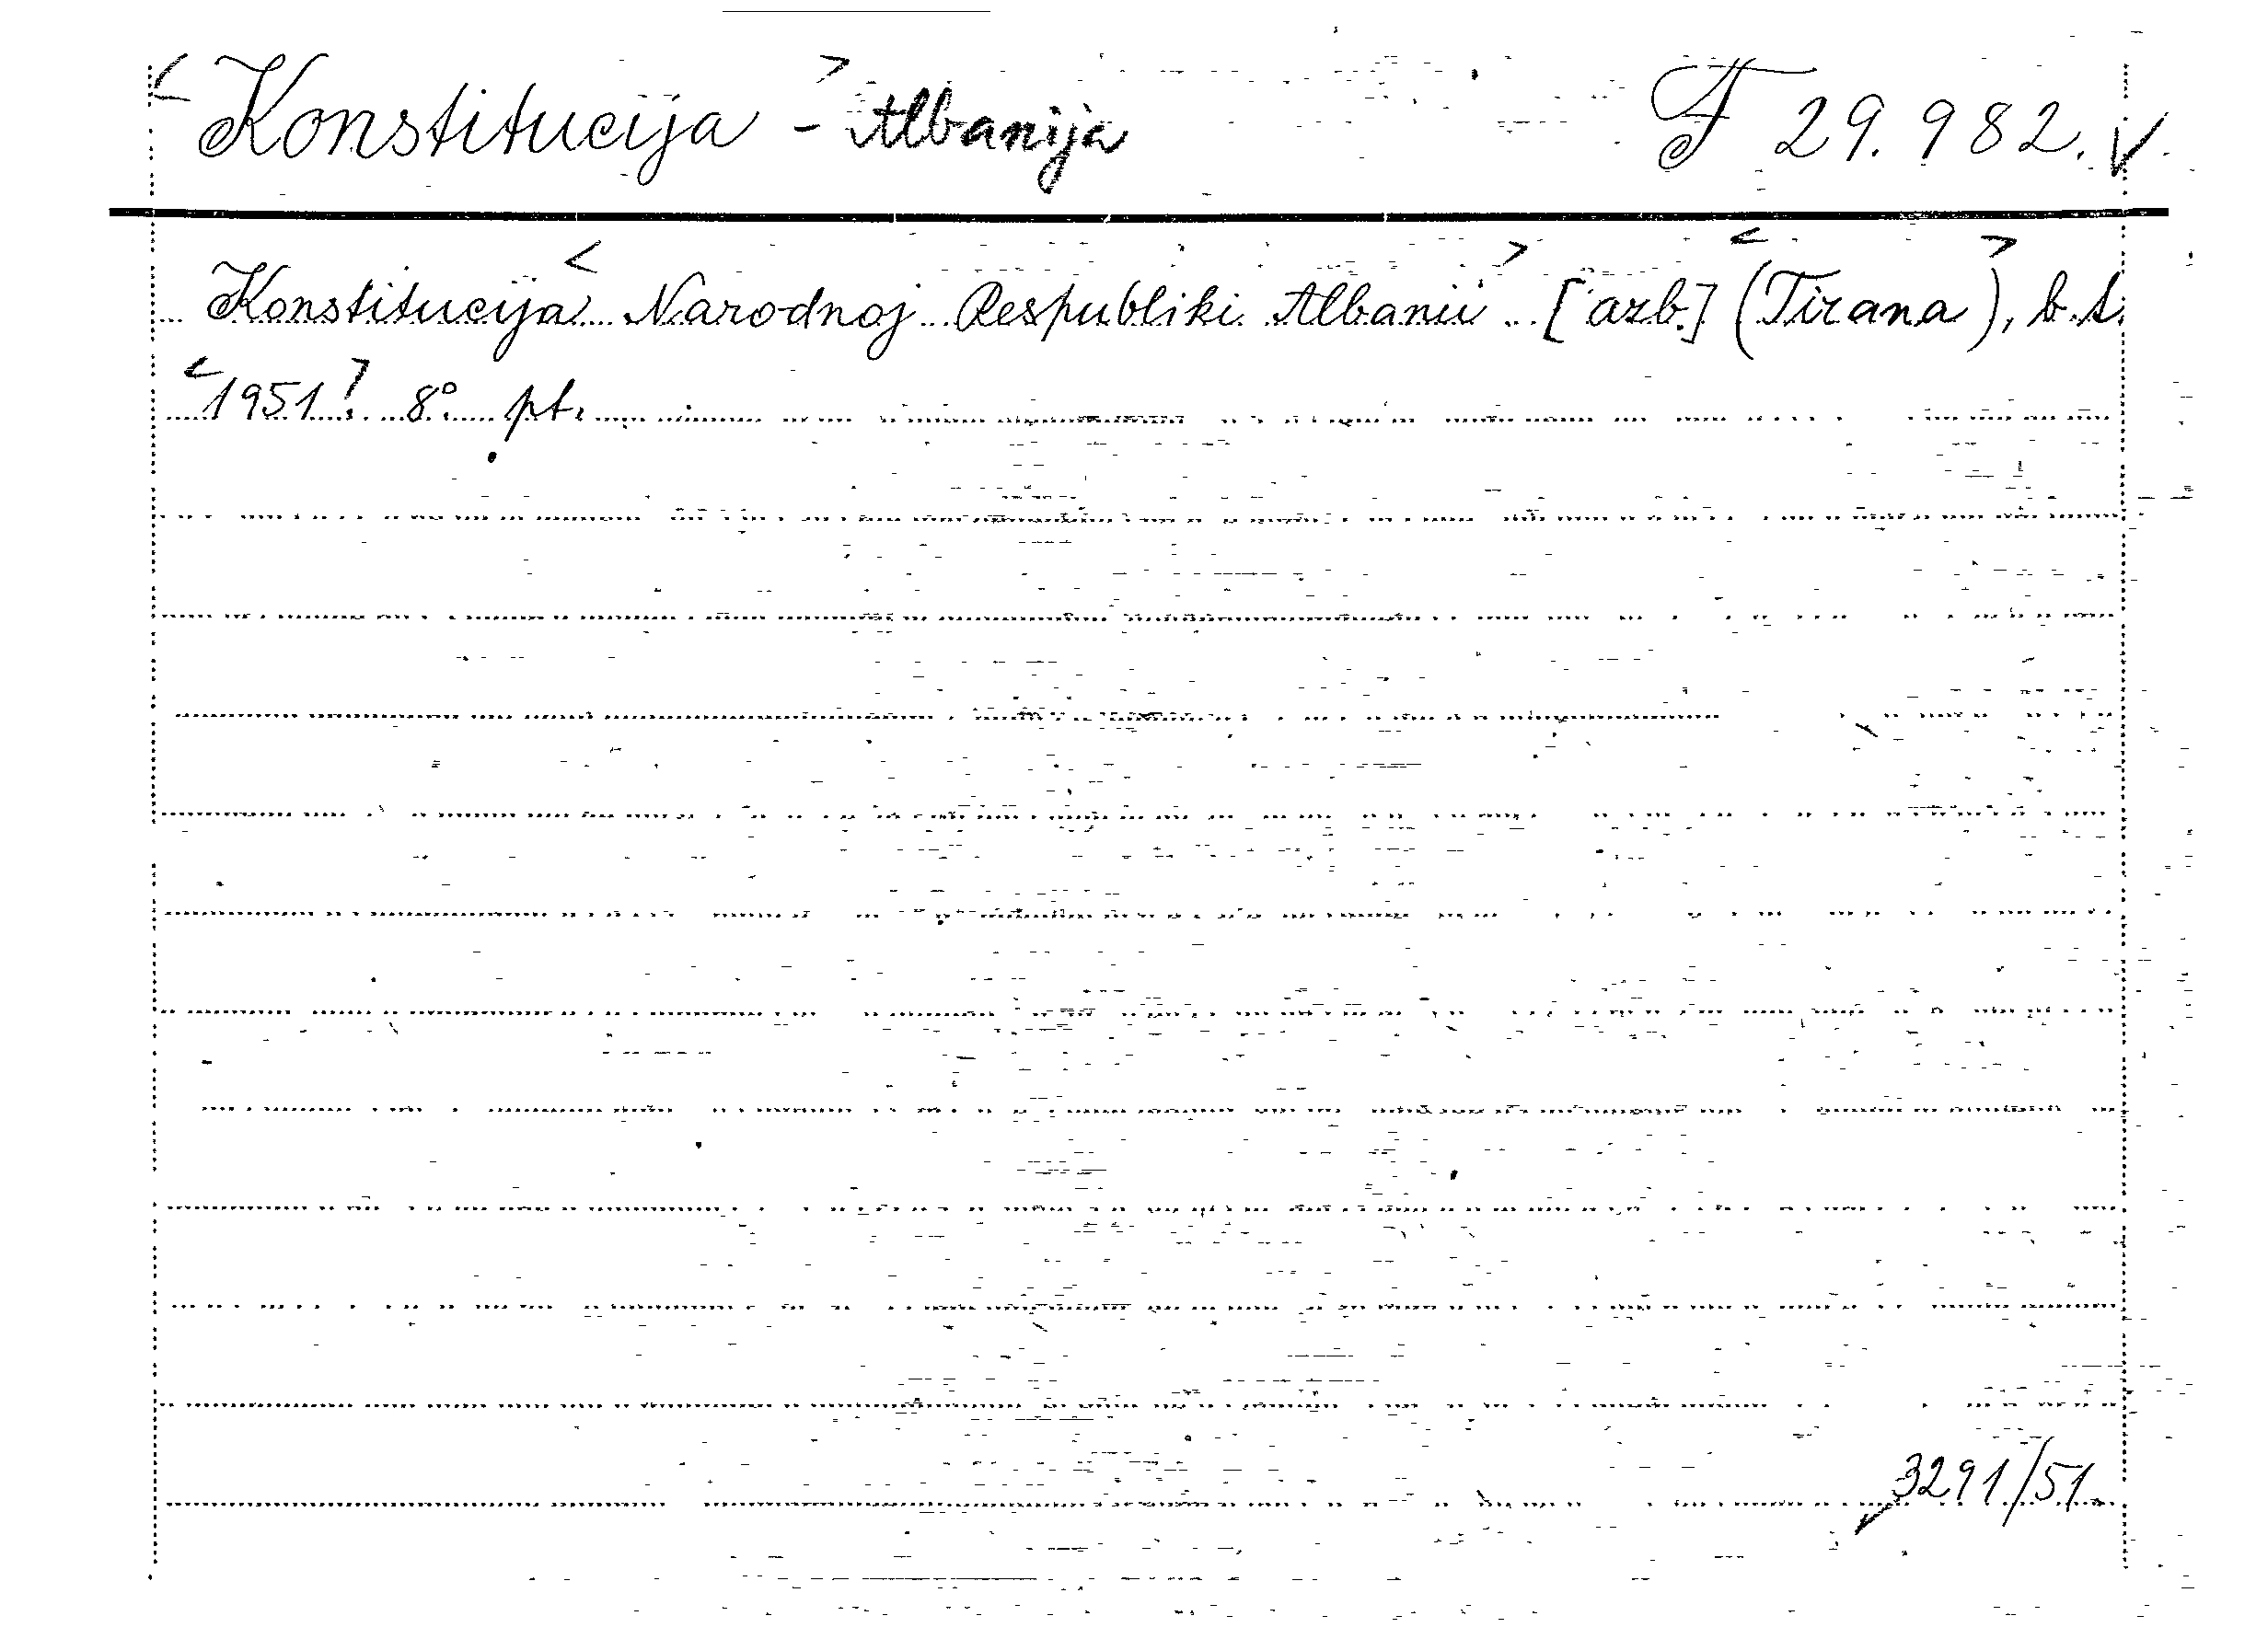 <Konstitucija> - Albanija F 29.982. √
Konstitucija <Narodnoj Respubliki Albanii> [azb.] (<Tirana>), b.t.
<1951>. 8° pt.
3291/51.